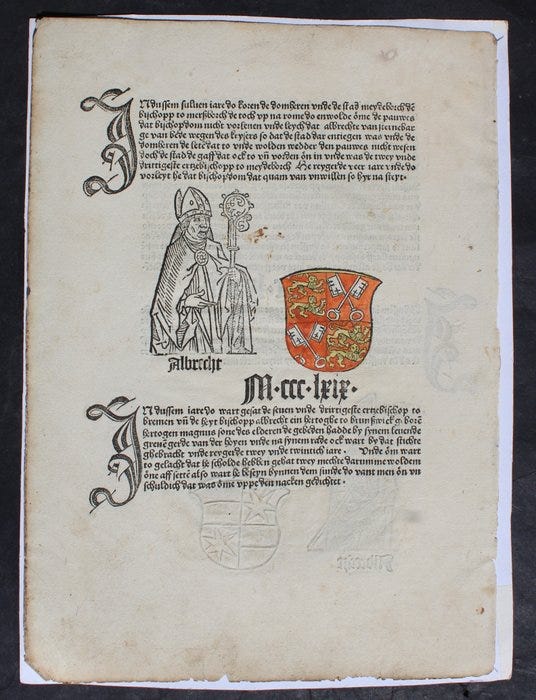 IN dussem suluen iare do koren de domheren vnde de stad meydeborch dē
bisschopp to merßborch de toch vp na rome do en wolde ōme de pauwes
dat bischopdom nicht vorlenen vnde leych dat albrechte van
ge van bede wegen des keysers so dat de stad dar entiegen was vnde de
domheren de lete dat to vnde wolden wedder den pauwes nicht wesen
doch de stad de gaff dat ock to vn worden ōn in vnde was de twey vnde
drittigeste ertzebischopp to meydeborch He reygerde veer iare vnde do
vorleyt he dat bischopdom dat quam van vnwillen so hyr na steyt.
Albrecht
M.ccc.lxix.
IN dussem iare do wart gesat de seuen vnde drittigeste ertzebischop to
bremen vn̄ de heyt bisschopp albrecht ein hertoghe to brunßwick gborē
hertogen magnus sone des elderen de gebeden hadde by synem leuende
greuē gerde van der hoyen vnde na synem rede ock wart by dat stichte
ghebracht vnde reygerde twey vnde twintich iare. Vnde ōm wart
to gelacht dat he scholde hebben gehat twey mechte darumme woldem
ōne aff setten also wart he beseyn bynnen dem sunde do vant men ōn vn
schuldich dat was ōme vppe den nacken gedichtet.
Albrecht